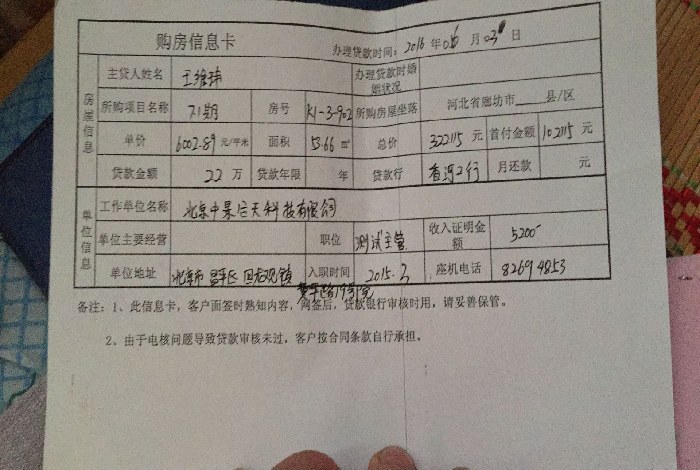 购房信息卡
办理贷款时间：2016 年 06 月 03 日
主贷人姓名 办理贷款时婚姻状况
房屋信息
所购项目名称 71期 房号 K1-3-902 所购房屋坐落 河北省廊坊市____县/区
单价 6002.89 元/平米 面积 53.66 ㎡ 总价 322115 元 首付金额 102115 元
贷款金额 22 万 贷款年限 年 贷款行 香河工行 月还款 元
单位信息
工作单位名称 北京中 天科技有限公司
单位主要经营 职位 测试主管 收入证明金额 5200
单位地址 北京市 昌平区 回龙观镇 入职时间 2015.3 座机电话 82694853
备注：1、此信息卡，客户面签时熟知内容，网签后，贷款银行审核时用，请妥善保管。
2、由于电核问题导致贷款审核未过，客户按合同条款自行承担。